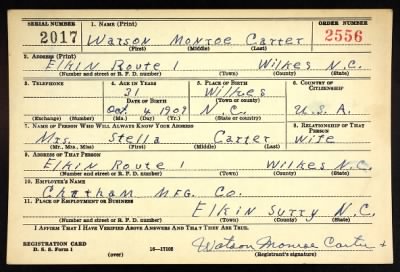 SERIAL NUMBER 1. NAME (Print) ORDER NUMBER
2017 Watson Monroe Carter 2556
(First) (Middle) (Last)
2. ADDRESS (Print)
Elkin Route 1 Wilkes N.C.
(Number and street or R. F. D. number) (Town) (County) (State)
3. TELEPHONE 4. AGE IN YEARS 5. PLACE OF BIRTH 6. COUNTRY OF CITIZENSHIP
31 Wilkes
DATE OF BIRTH (Town or county)
Oct 4 1909 N.C. U.S.A.
(Exchange) (Number) (Mo.) (Day) (Yr.) (State or country)
7. NAME OF PERSON WHO WILL ALWAYS KNOW YOUR ADDRESS 8. RELATIONSHIP OF THAT PERSON
Mrs. Stella Carter Wife
(Mr., Mrs., Miss) (First) (Middle) (Last)
9. ADDRESS OF THAT PERSON
Elkin Route 1 Wilkes N.C.
(Number and street or R. F. D. number) (Town) (County) (State)
10. EMPLOYER'S NAME
Chatham MFG. Co.
11. PLACE OF EMPLOYMENT OR BUSINESS
Elkin Surry N.C.
(Number and street or R. F. D. number) (Town) (County) (State)
I AFFIRM THAT I HAVE VERIFIED ABOVE ANSWERS AND THAT THEY ARE TRUE.
REGISTRATION CARD
D. S. S. Form 1 16—17105 Watson Monroe Carter
(over) (Registrant's signature)